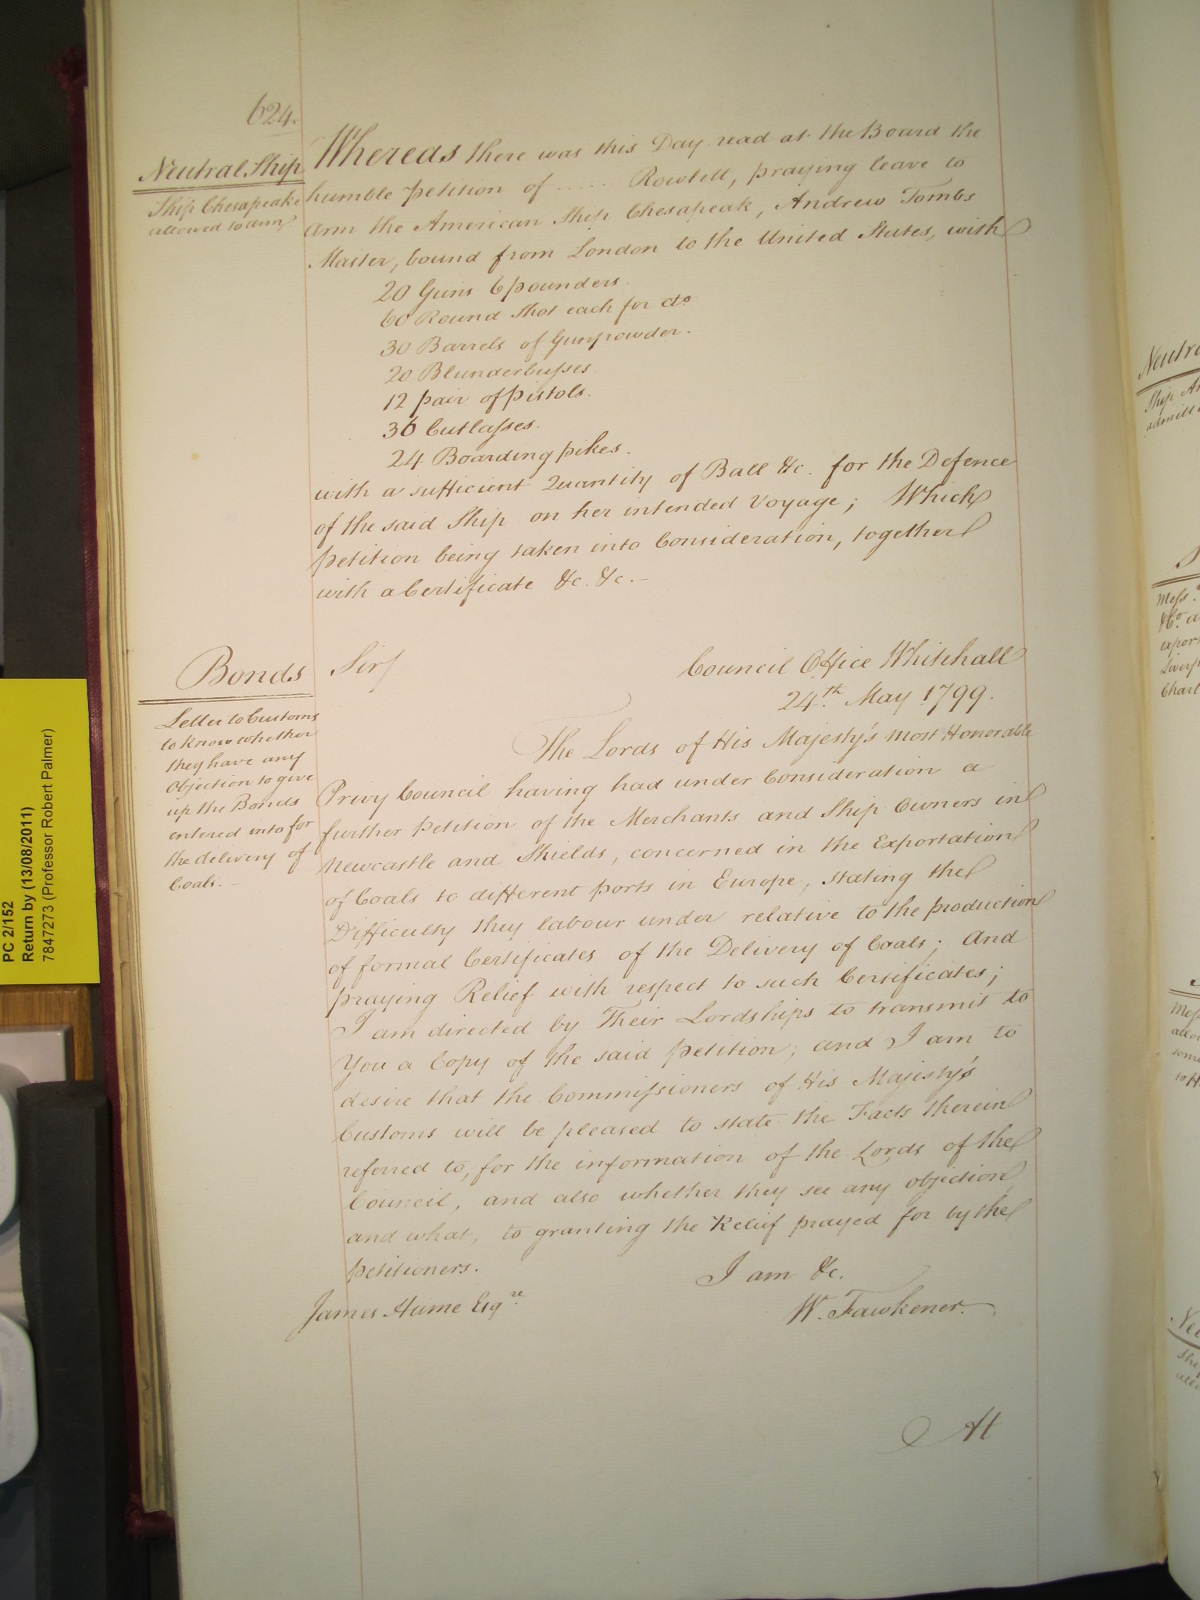 624.
Neutral Ship
Ship Chesapeake
allowed to arm
Whereas there was this Day read at the Board the
humble petition of ..... Rowlett, praying leave to
arm the American Ship Chesapeak, Andrew Tombs
Master, bound from London to the United States, with
20 Guns 6 pounders.
60 Round Shot each for do
30 Barrels of Gunpowder.
20 Blunderbusses.
12 pair of Pistols.
36 Cutlasses.
24 Boarding pikes.
with a sufficient Quantity of Ball &c. for the Defence
of the said Ship on her intended Voyage; Which
petition being taken into Consideration, together
with a Certificate &c. &c. —
Bonds
Letter to Customs
to know whether
they have any
Objection to give
up the Bonds
entered into for
the delivery of
Coals. —
Sir/
Council Office Whitehall
24th. May 1799.
The Lords of His Majesty's most Honorable
Privy Council having had under Consideration a
further Petition of the Merchants and Ship Owners in
Newcastle and Shields, concerned in the Exportation
of Coals to different ports in Europe, stating the
Difficulty they labour under relative to the production
of formal Certificates of the Delivery of Coals; And
praying Relief with respect to such Certificates;
I am directed by Their Lordships to transmit to
You a Copy of the said Petition; and I am to
desire that the Commissioners of His Majesty's
Customs will be pleased to state the Facts therein
referred to, for the information of the Lords of the
Council, and also whether they see any objection,
and what, to granting the Relief prayed for by the
petitioners.
I am &c.
James Hume Esqre.
W. Fawkener.
At
PC 2/152
Return by (13/08/2011)
7847273 (Professor Robert Palmer)
Neutra
Ship A
Mess.
&Co. a
expor
Liverp
Charl
Mess
allow
some
to H
Neu
Ship
allo